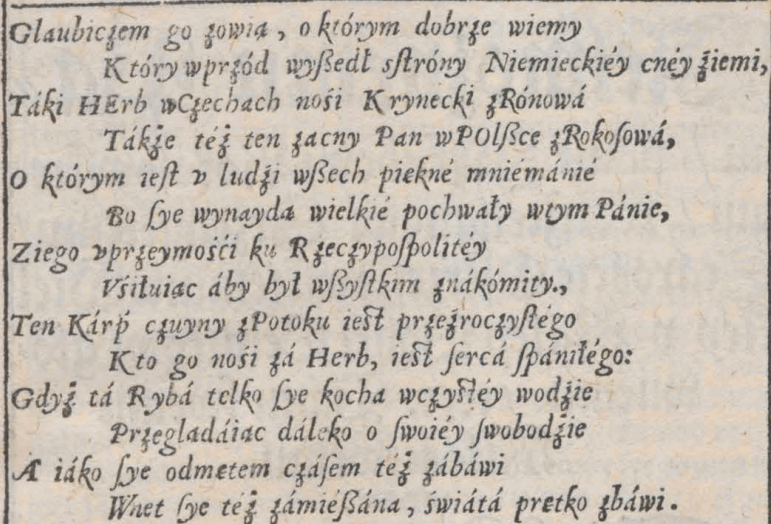 Glaubiczem go zowią, o którym dobrze wiemy
Który wprzód wyßedł sſtróny Niemieckiéy cnéy źiemi,
Táki HErb wCzechach nośi Krynecki zRónowá
Tákże téż ten zacny Pan wPOlßce zRokoſowá,
O którym ieſt v ludźi wßech piękné mniémánié
Bo ſye wynaydą wielkié pochwały wtym Pánie,
Ziego vprzeymośći ku Rzeczypoſpolitéy
Vśiłuiąc áby był wßyſtkim znákómity.,
Ten Kárṕ czuyny zPotoku ieſt przeźroczyſtégo
Kto go nośi zá Herb, ieſt ſercá ſpániłégo:
Gdyż tá Rybá telko ſye kocha wczyſtéy wodźie
Przeglądáiąc dáleko o ſwoiéy ſwobodźie
A iáko ſye odmętem czáſem téż zábáwi
Wnet ſye téż zámießána, świátá prętko zbáwi.